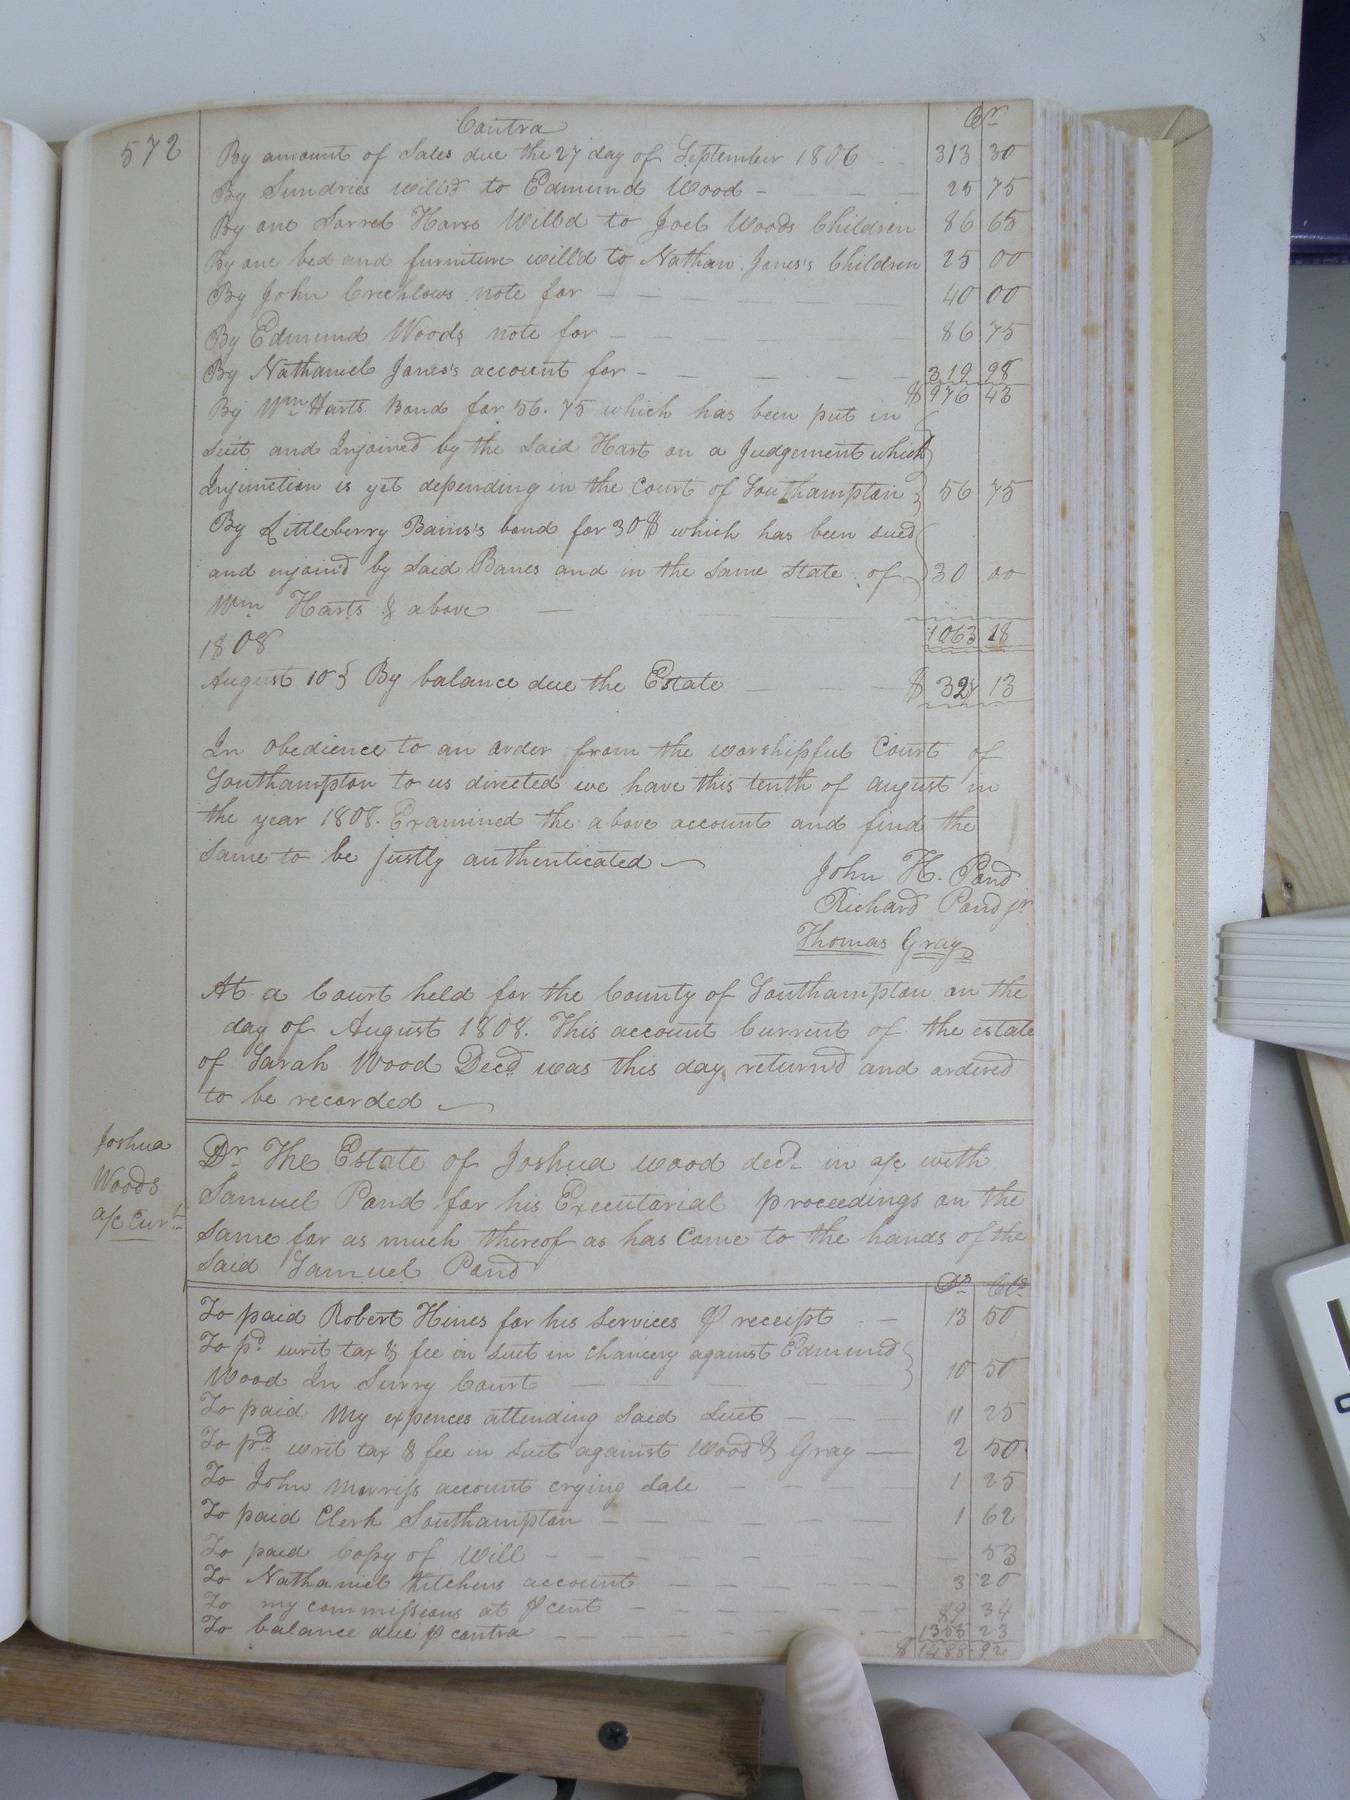 572
Contra Cr
By amount of Sales due the 27 day of September 1806 313 30
By Sundries will'd to Edmund Wood 25 75
By one Sorrel Horse Will'd to Joel Woods Children 86 65
By one bed and furniture will'd to Nathan Jones's Children 25 00
By John Crichlows note for 40 00
By Edmund Woods note for 86 75
By Nathaniel Jones's account for 319 98
$ 976 43
By Wm Harts Bond for 56.75 which has been put in
suit and Injoined by the Said Hart on a Judgement which
Injunction is yet depending in the Court of Southampton 56 75
By Littleberry Bains's bond for 30$ which has been sued
and enjoin'd by Said Banes and in the same state of 30 00
Wm Harts & above
1063 18
1808
August 10 By balance due the Estate $ 13
In obedience to an order from the worshipful Court of
Southampton to us directed we have this tenth of August in
the year 1808. Examined the above account and find the
same to be justly authenticated
John H. Pond
Richard Pond jr
Thomas Gray
At a Court held for the County of Southampton on the
day of August 1808. This account Current of the estate
of Sarah Wood Decd was this day return'd and ordered
to be recorded
Joshua
Woods
a/c Curt
Dr The Estate of Joshua Wood decd in a/c with
Samuel Pond for his Executorial proceedings on the
same for as much thereof as has Come to the hands of the
said Samuel Pond
Ds Cts
To paid Robert Hines for his Services ⅌ receipt 13 50
To pd writ tax & fee in Suit in Chancery against Edmund
Wood In Surry Court 10 50
To paid My expences attending Said Suit 11 25
To pd writ tax & fee in Suit against Wood & Gray 2 50
To John Morriss account crying Sale 1 25
To paid Clerk Southampton 1 62
To paid Copy of Will 53
To Nathaniel Kitchens account 3 20
To my commissions at ⅌ cent 89 34
To balance due ⅌ contra 1355 23
$ 1488 92